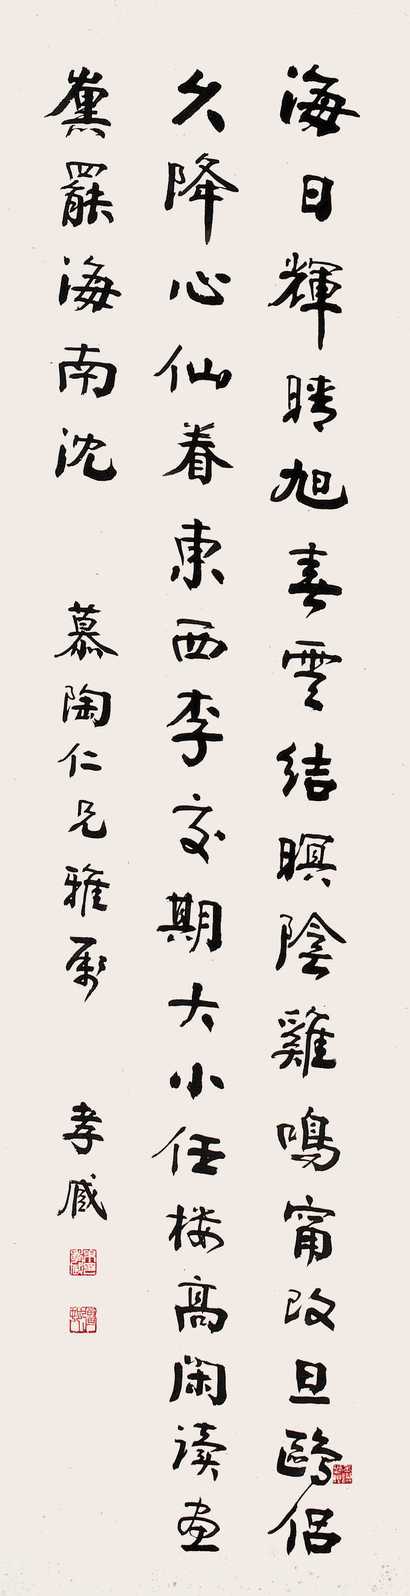 海日輝晴旭春雲結暝陰雞鳴甯改旦鷗侶
久降心仙眷東西李交期大小任楼高閑读画
熏罷海南沈
慕陶仁兄雅屬
孝臧